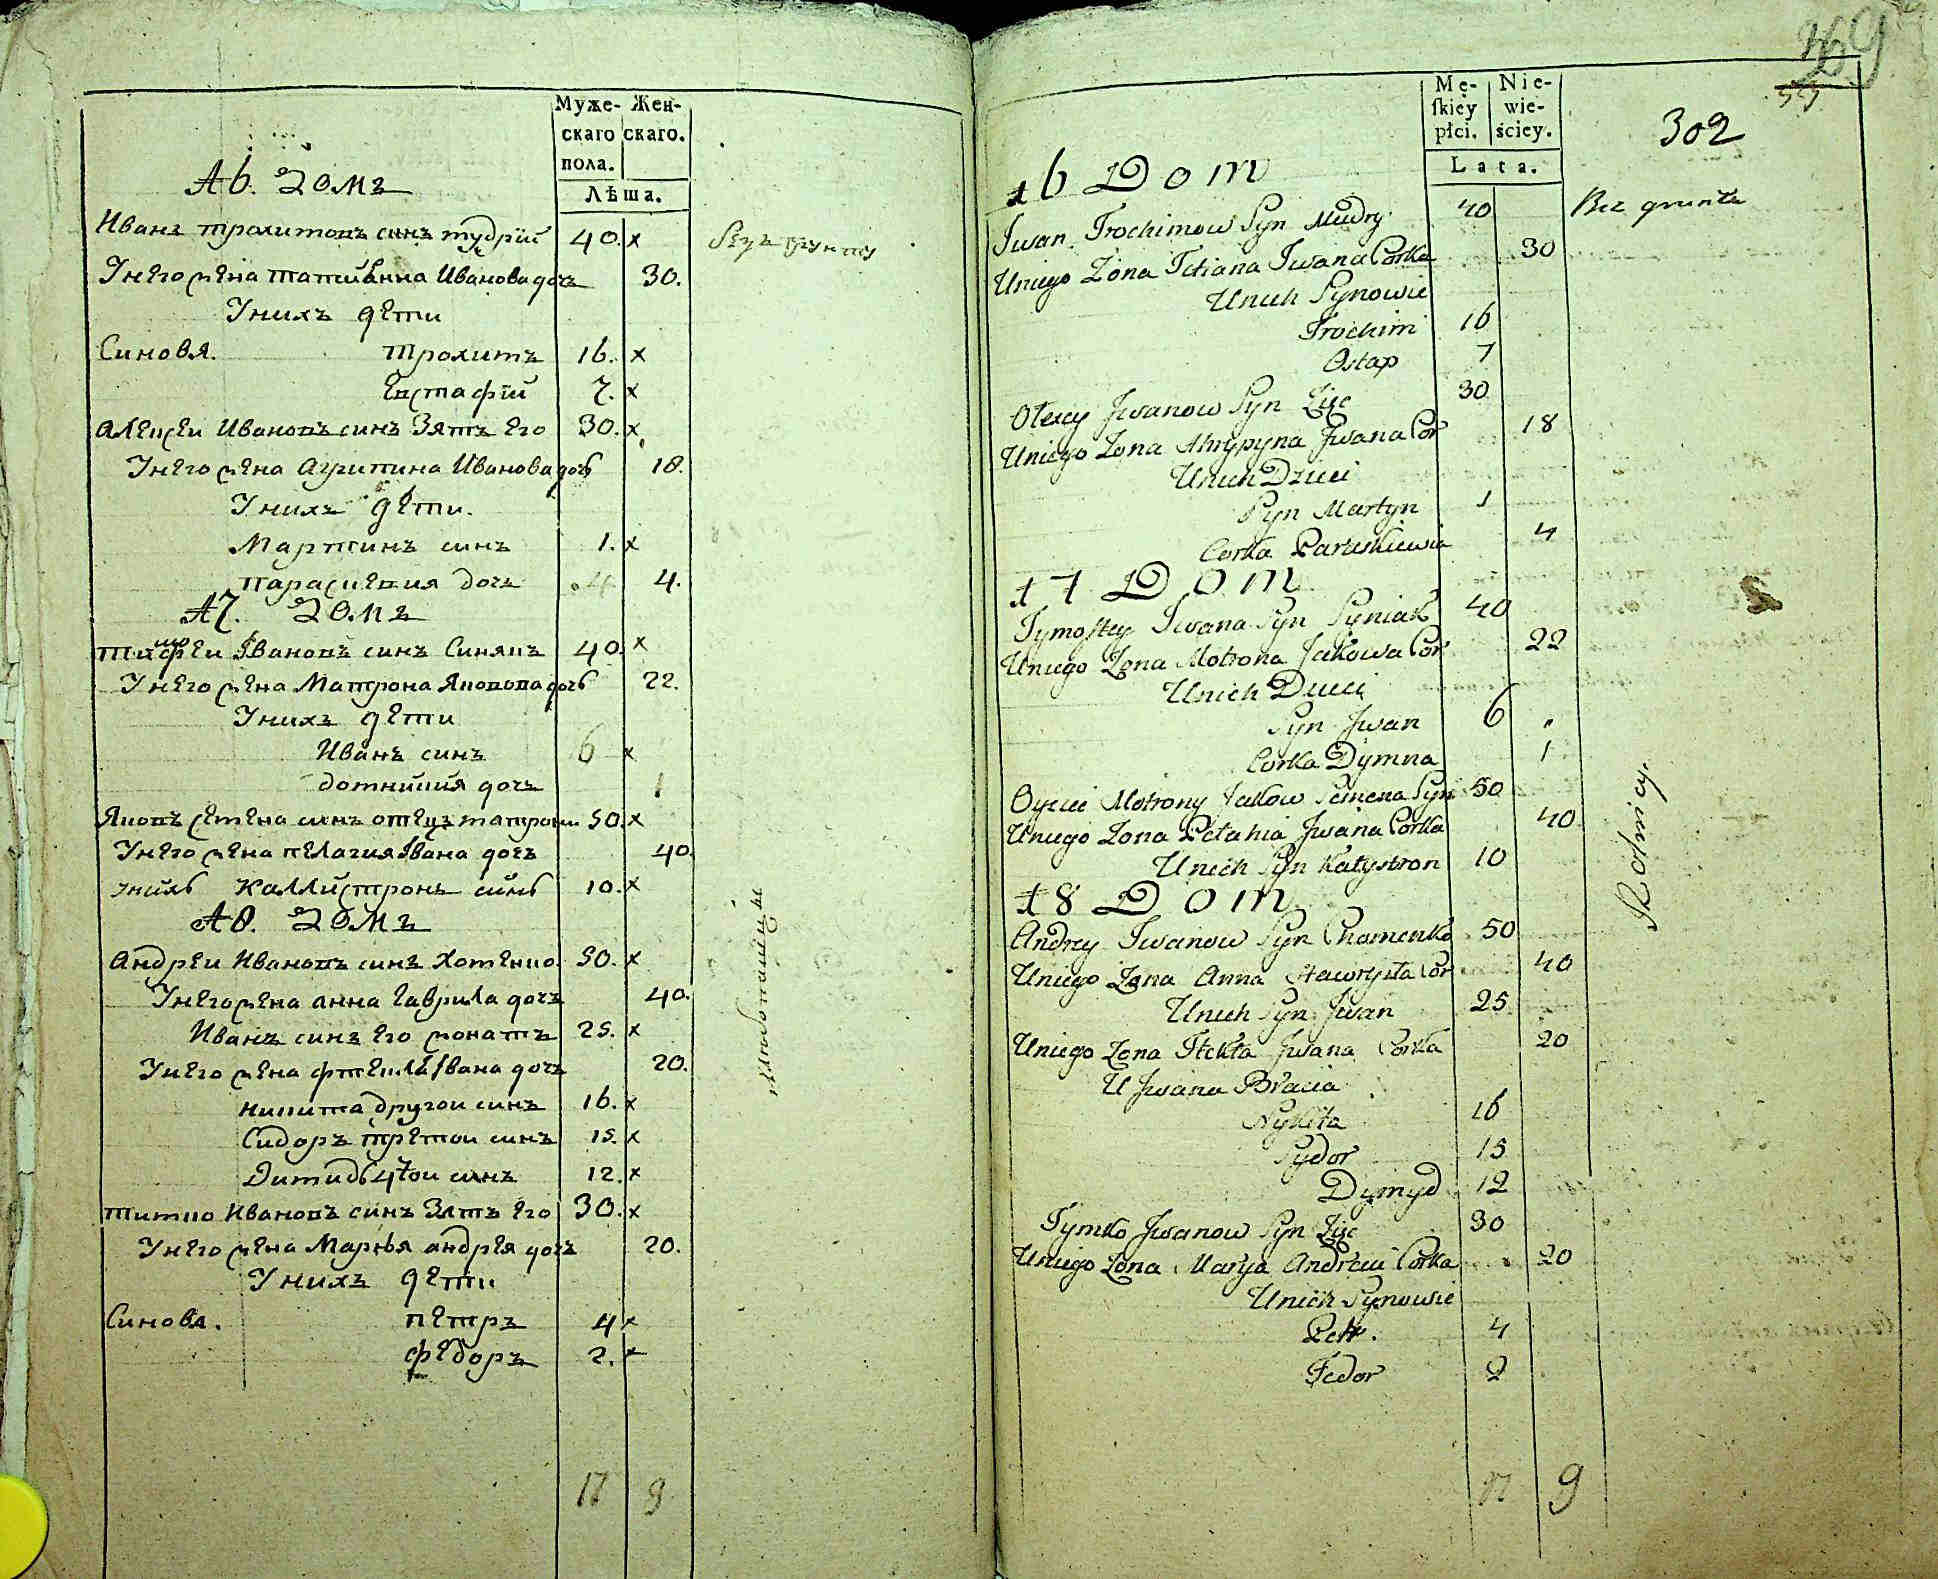 Муже-
скаго
пола.
Жен-
скаго.
Лѣта.
16. домъ
Иванъ трохимовъ синъ мудрій 40. х
безъ грунту
У него жена татиянна Иванова дочь 30.
У нихъ дети
Синовя. трохимъ 16. х
Евстафій 7. х
Алексеи Ивановъ синъ Зять его 30. х
У него жена агрипина Иванова дочь 18.
У нихъ дети.
Мартинъ синъ 1. х
параскевия дочь 4.
17. домъ
тимофеи Iвановъ синъ Синякъ 40. х
У него жена Матрона Яковова дочь 22.
У нихъ дети
Иванъ синъ 6 х
домникия дочь 1
Яковъ семена синъ отецъ матрони 50. х
У него жена пелагия Iвана дочь 40.
У нихъ Каллистронъ синъ 10. х
18. домъ
Андреи Ивановъ синъ Хоменко 50. х
У него жена анна гаврила дочь 40.
Иванъ синъ его жонатъ 25. х
У него жена фтекля Iвана дочь 20.
никита другои синъ 16. х
Сидоръ третои синъ 15. х
Димидъ 4тои синъ 12. х
тимко Ивановъ синъ Зять его 30. х
У него жена Марья андрея дочь 20.
У нихъ дети
Синовя. петръ 4 х
федоръ 2. х
17 9
369
302
Mę-
ſkiey
płci.
Nie-
wie-
ściey.
Lata.
16 Dom
Bez gruntu
Iwan Trochimow Syn Mudry 40
Uniego Zona Tatiana Iwana Corka 30
Unich Synowie
Trochim 16
Ostap 7
Olexy Iwanow Syn Zięc 30
Uniego Zona Ahrypyna Iwana Cor 18
Unich Dzieci
Syn Martyn 1
Corka Paraskiewia 4
17 Dom
Tymoſzey Iwana Syn Syniak 40
Uniego Zona Motrona Jakowa Cor 22
Unich Dzieci
Syn Iwan 6
Corka Dymna 1
Oyciec Motrony Jakow Semena Syn 50
Uniego Zona Pelahia Iwana Corka 40
Unich Syn Kalystron 10
18 Dom
Rolnicy.
Andrey Iwanow Syn Chomenko 50
Uniego Zona Anna Hawryła Cor 40
Unich Syn Iwan 25
Uniego Zona Tekla Iwana Corka 20
U Iwana Bracia
Nykita 16
Sydor 15
Dymyd 12
Tymko Iwanow Syn Zięc 30
Uniego Zona Marya Andreia Corka 20
Unich Synowie
Petr. 4
Fedor 2
17 9